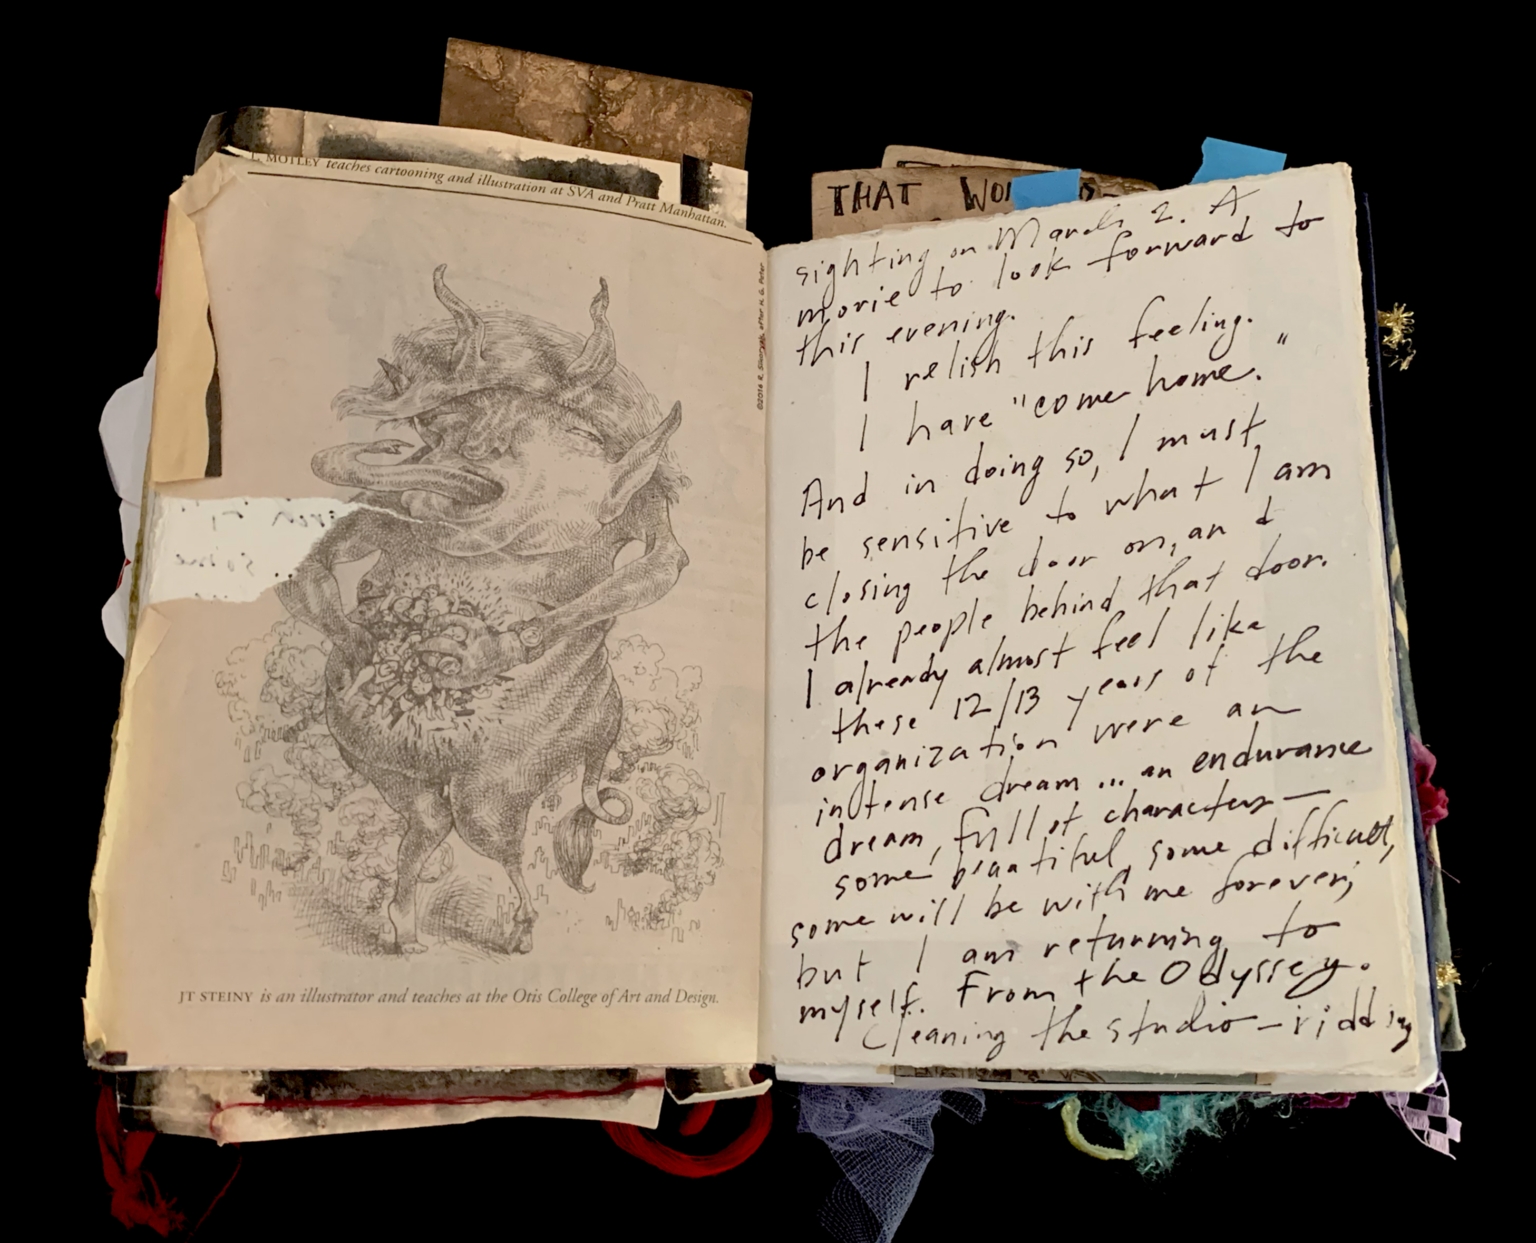 L. MOTLEY teaches cartooning and illustration at SVA and Pratt Manhattan.
JT STEINY is an illustrator and teaches at the Otis College of Art and Design.
THAT
sighting on March 2. A
movie to look forward to
this evening.
I relish this feeling.
I have "come home."
And in doing so, I must
be sensitive to what I am
closing the door on, and
the people behind that door.
I already almost feel like
these 12/13 years of the
organization were an
intense dream... an endurance
dream, full of characters—
some beautiful, some difficult,
some will be with me forever;
but I am returning to
myself. From the Odyssey.
Cleaning the studio—ridding